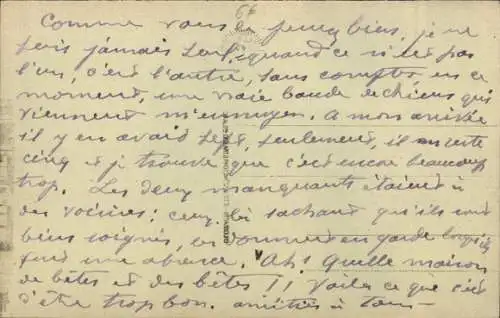 6f
Comme vous le pensez bien, je ne
suis jamais seul, quand ce n'est pas
l'un, c'est l'autre, sans compter en ce
moment, une vraie bande de chiens qui
viennent m'ennuyer. A mon arrivée
il y en avait sept, seulement, il en reste
cinq et je trouve que c'est encore beaucoup
trop. Les deux manquants étaient à
des voisins; ceux-là sachant qu'ils sont
bien soignés, en donnent en garde lorsqu'ils
font une absence. Ah! Quelle maison
de bêtes et des bêtes!! Voilà ce que c'est
d'être trop bon. amitiés à tous